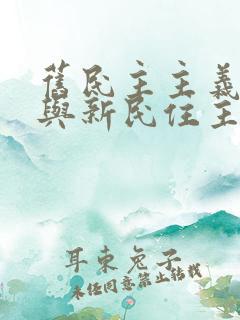 舊民主主義
與新民住主
耳東兔子
未任同意禁止转载